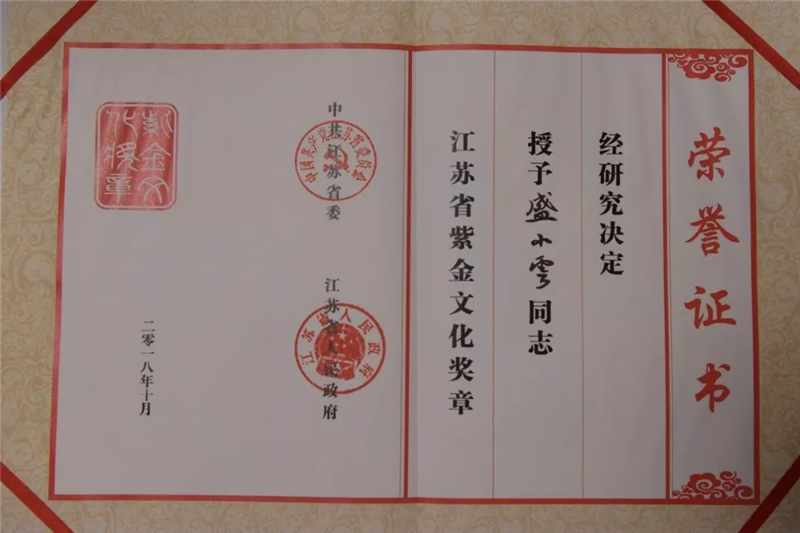 荣誉证书
经研究决定
授予盛小云同志
江苏省紫金文化奖章
中共江苏省委
中国共产党江苏省委员会
江苏省人民政府
江苏省人民政府
二零一八年十月
紫金文化奖章